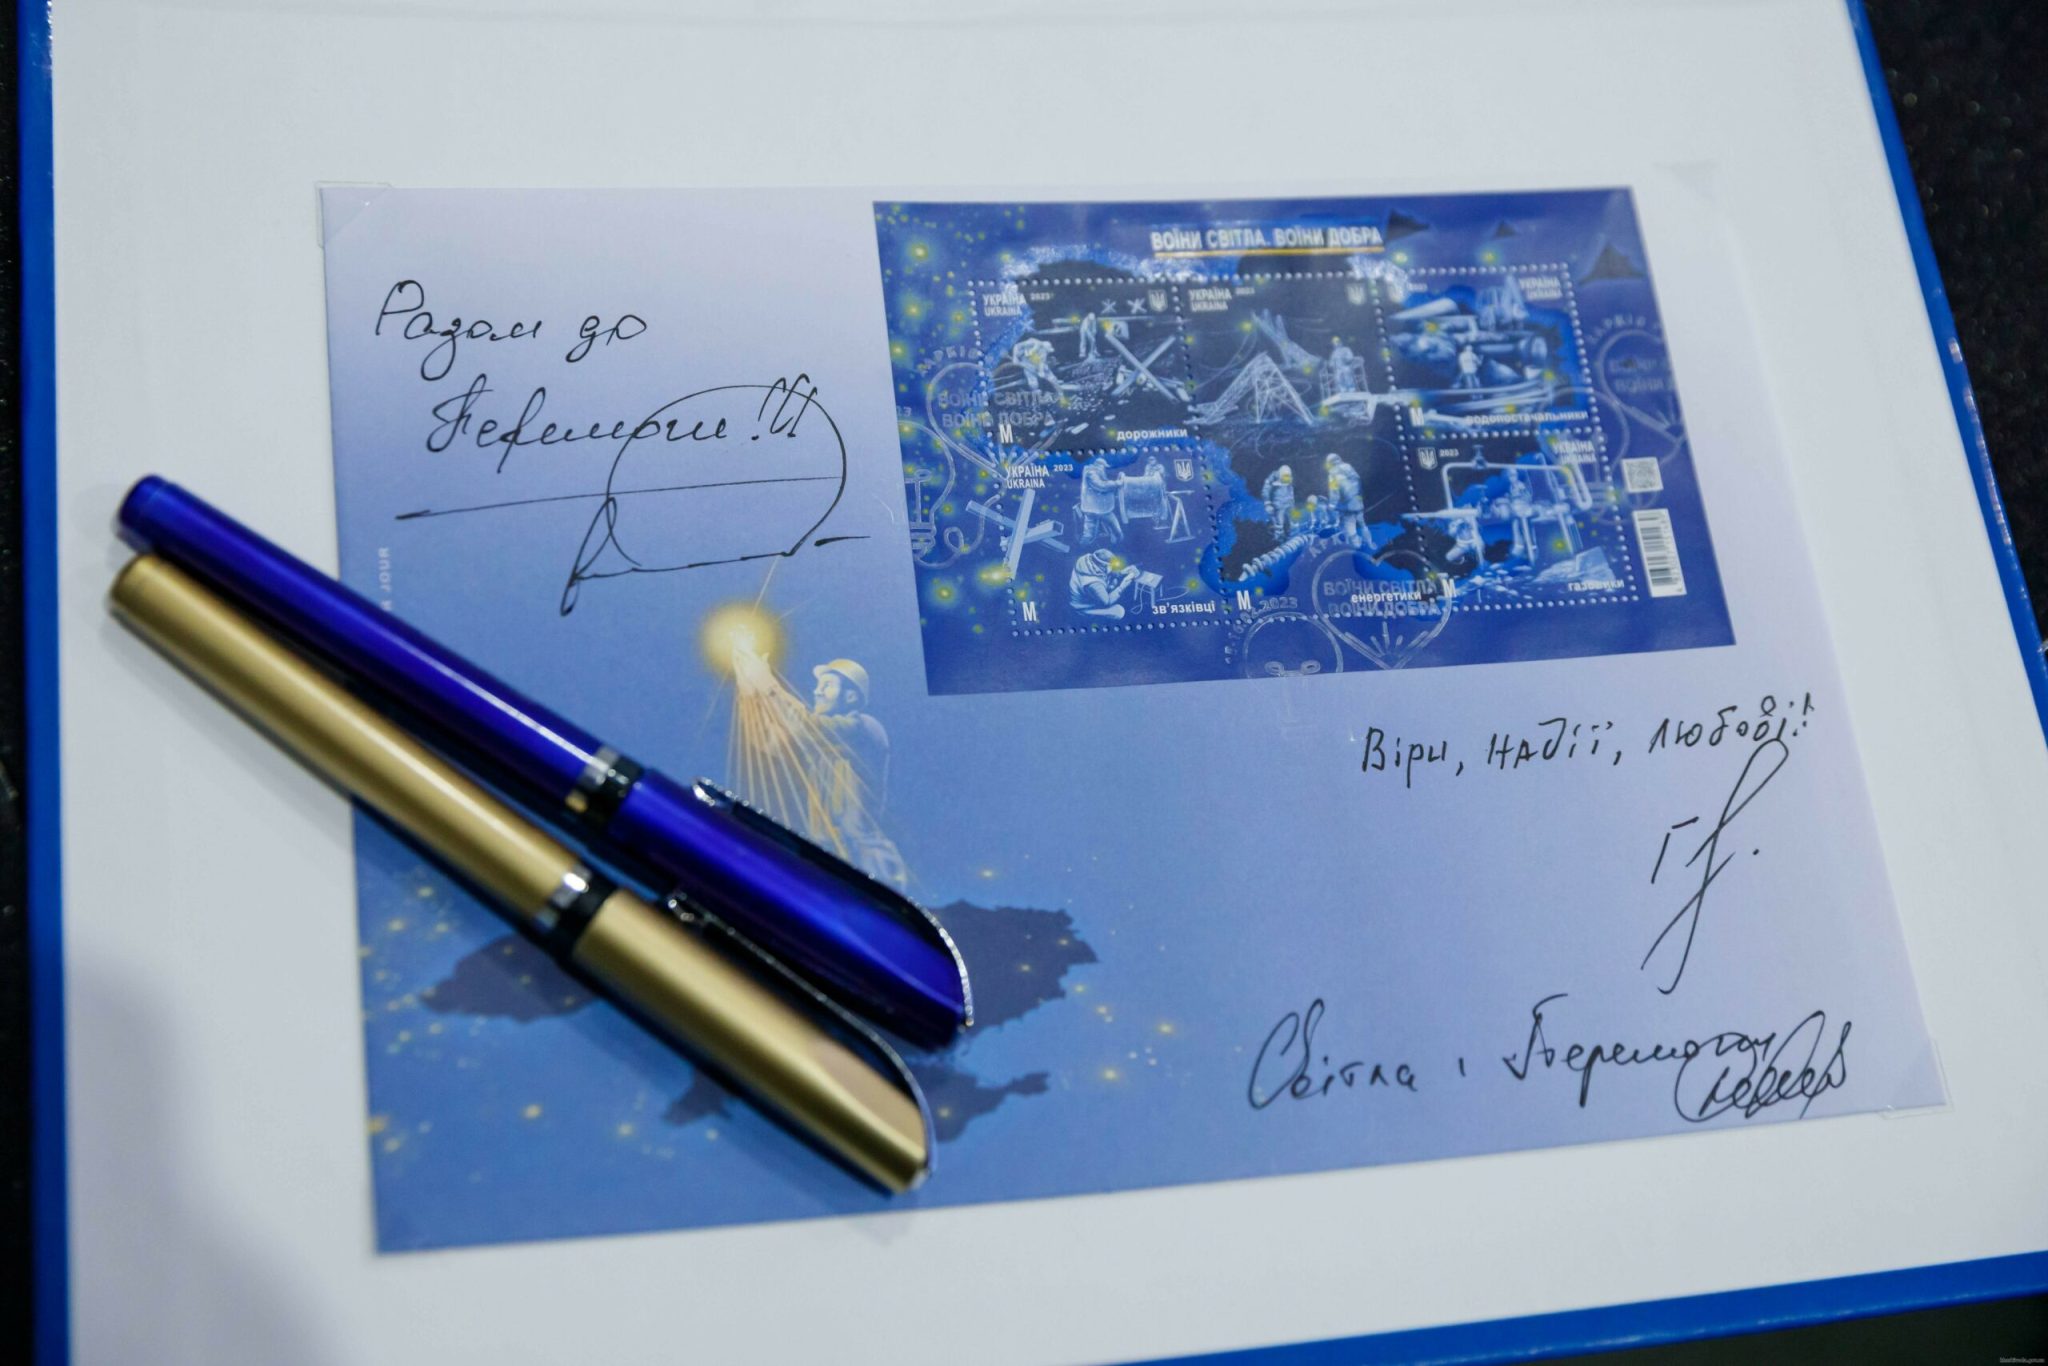 Разом до
Перемоги!!!
ВОЇНИ СВІТЛА. ВОЇНИ ДОБРА
УКРАЇНА 2023
UKRAINA
M
дорожники
УКРАЇНА 2023
UKRAINA
2023 УКРАЇНА
UKRAINA
M
водопостачальники
УКРАЇНА 2023
UKRAINA
M
зв'язківці
M
енергетики
2023 УКРАЇНА
UKRAINA
M
газовики
ВОЇНИ СВІТЛА
ВОЇНИ ДОБРА
ВОЇНИ СВІТЛА
ВОЇНИ ДОБРА
ХАРКІВ
JOUR
Віри, надії, любові!
Світла і Перемоги